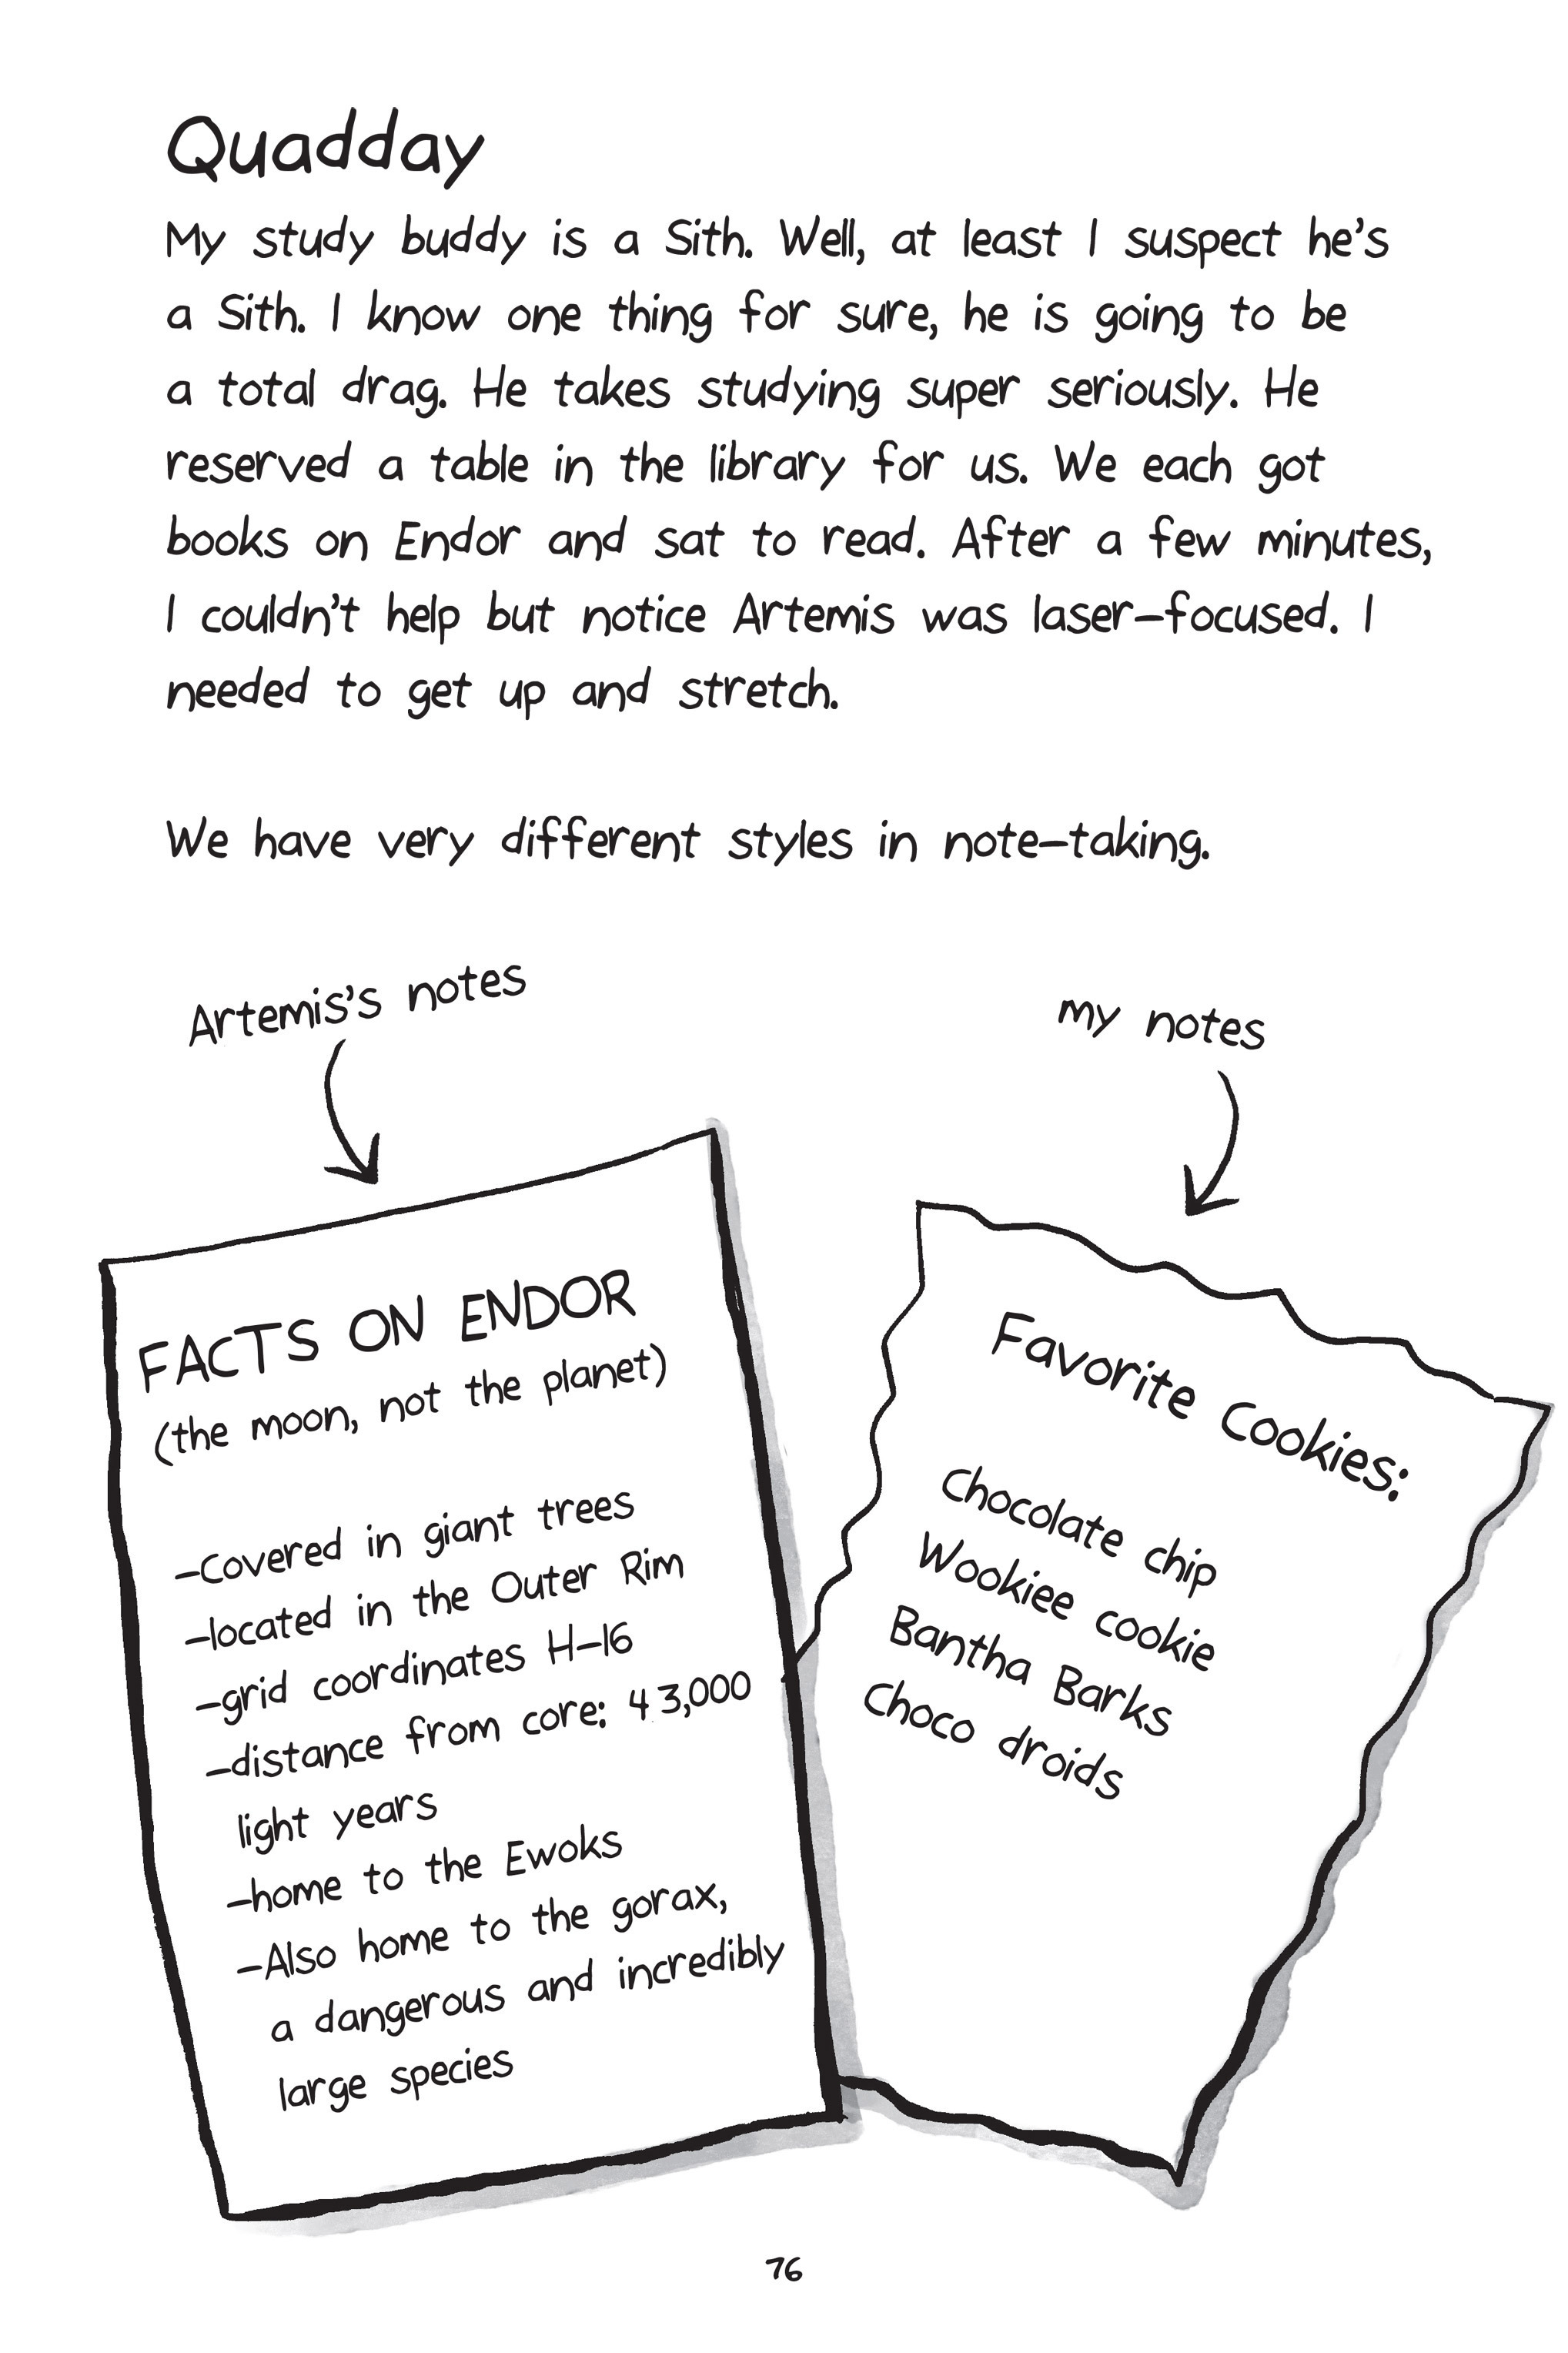 Quadday
My study buddy is a Sith. Well, at least I suspect he's
a Sith. I know one thing for sure, he is going to be
a total drag. He takes studying super seriously. He
reserved a table in the library for us. We each got
books on Endor and sat to read. After a few minutes,
I couldn't help but notice Artemis was laser-focused. I
needed to get up and stretch.
We have very different styles in note-taking.
Artemis's notes
FACTS ON ENDOR
(the moon, not the planet)
-Covered in giant trees
-located in the Outer Rim
-grid coordinates H-16
-distance from core: 43,000
light years
-home to the Ewoks
-Also home to the gorax,
a dangerous and incredibly
large species
my notes
Favorite Cookies:
Chocolate chip
Wookiee cookie
Bantha Barks
Choco droids
76